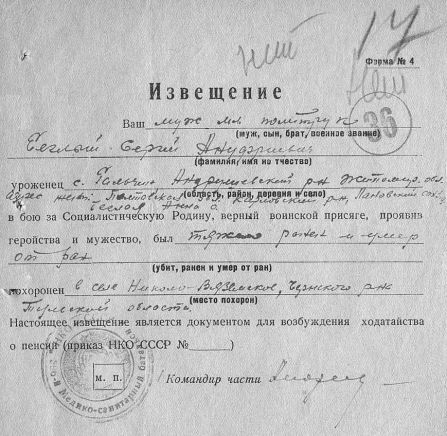 17
нит
Форма № 4
36
Извещение
Ваш муж мл политрук
(муж, сын, брат, военное звание)
Беглый Сергей Андреевич
(фамилия, имя но тчество)
уроженец с. Гальчин Андрушевский р-н Житомир. обл.
(область, район, деревня и село)
Адрес жены: Полтавская Карловский р-н,
в бою за Социалистическую Родину, верный воинской присяге, проявив
геройства и мужество, был тяжело ранен и умер
от ран
(убит, ранен и умер от ран)
похоронен в селе Николо-Вяземское, Чернского р-на
(место похорон)
Тульской области.
Настоящее извещение является документом для возбуждения ходатайства
о пенсии (приказ НКО СССР №______)
м. п.
Медико-санитарный
Командир части